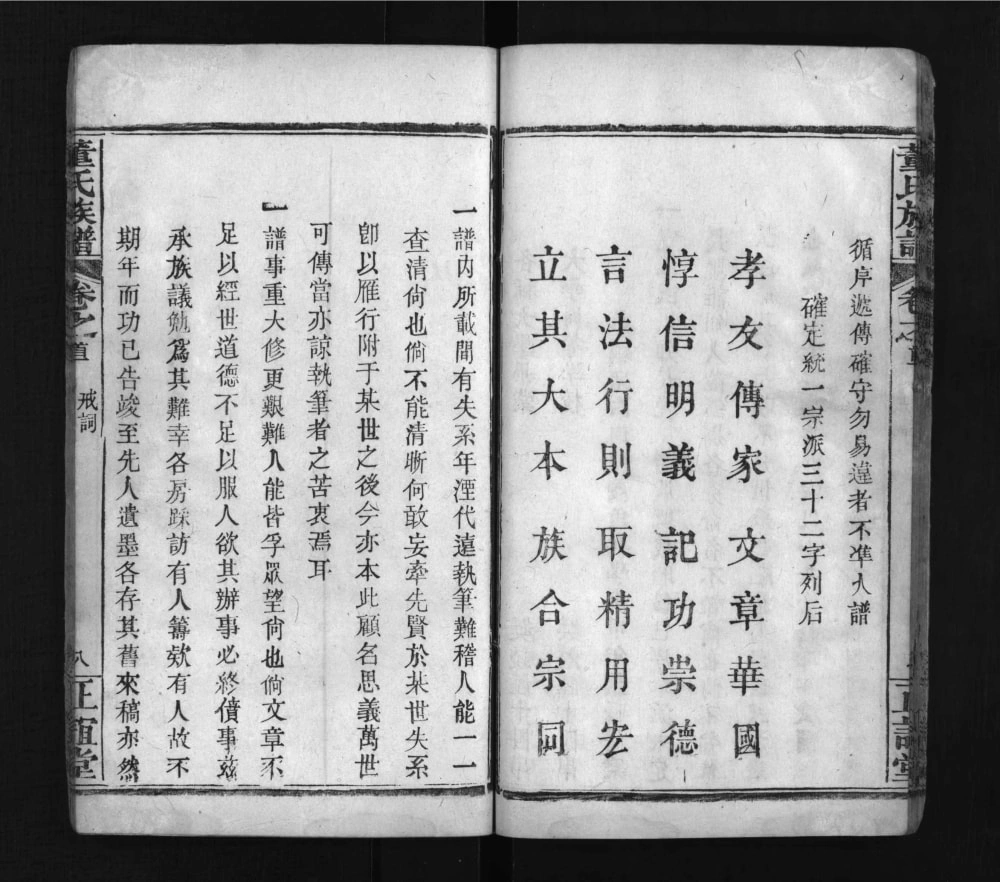 董氏族譜 卷之首
循序遞傳確守勿易違者不準入譜
確定統一宗派三十二字列后
孝友傳家 文章華國
惇信明義 記功崇德
言法行則 取精用宏
立其大本 族合宗同
一譜內所載間有失系年湮代遠執筆難稽人能一一
查清尙也倘不能清晰何敢妄牽先賢於某世失系
卽以雁行附于某世之後今亦本此顧名思義萬世
可傳當亦諒執筆者之苦衷焉耳
一譜事重大修更艱難人能皆孚眾望尙也倘文章不
足以經世道德不足以服人欲其辦事必終僨事茲
承族議勉為其難幸各房踩訪有人籌欵有人故不
期年而功已告竣至先人遺墨各存其舊來稿亦然
董氏族譜 卷之首 戒詞 八 正誼堂